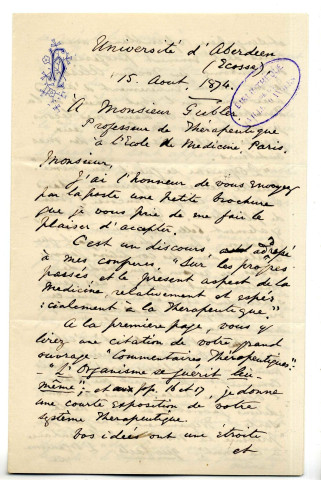 Université d'Aberdeen
(Ecosse)
15. Aout 1874.
À Monsieur Gubler
Professeur de Therapeutique
à l'Ecole de Medicine, Paris.
Monsieur,
J'ai l'honneur de vous envoyez
par la poste une petite brochure
que je vous prie de me fair le
plaisir d'accepter.
C'est un discours, adressé
à mes confreres, "Sur les progres
passés et le present aspect de la
Medicine, relativement et espec-
:ialement à la Therapeutique."
A la première page, vous y
lirez une citation de votre grand
ouvrage "Commentaires Thérapeutiques":
"l'Organisme se guérit lui
même"; et aux pp. 16 et 17, je donne
une courte exposition de votre
système Therapeutique.
Vos idées ont une étroite
et